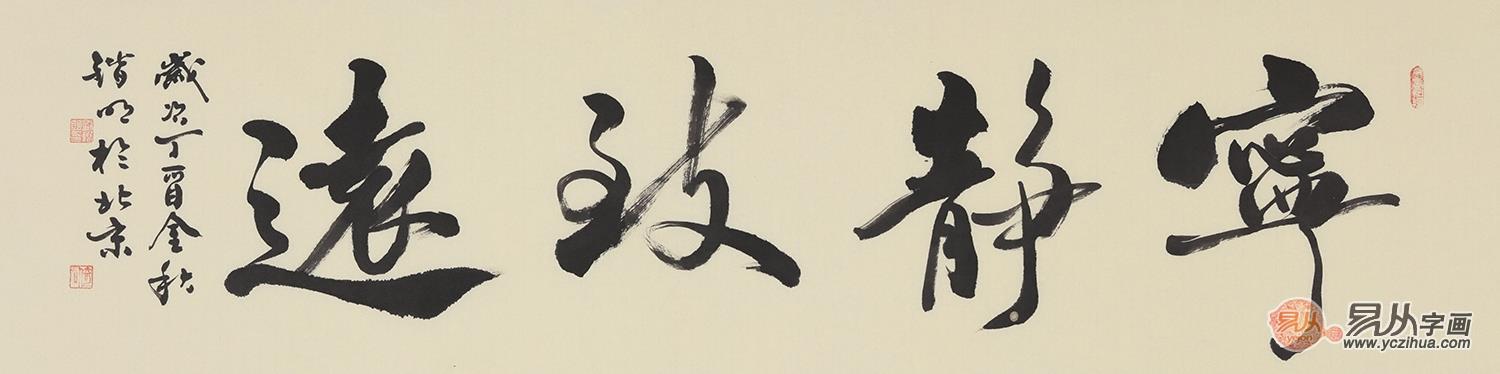 寧靜致遠
歲次丁酉金秋
锴明於北京
易从字画
yigon
www.yczihua.com